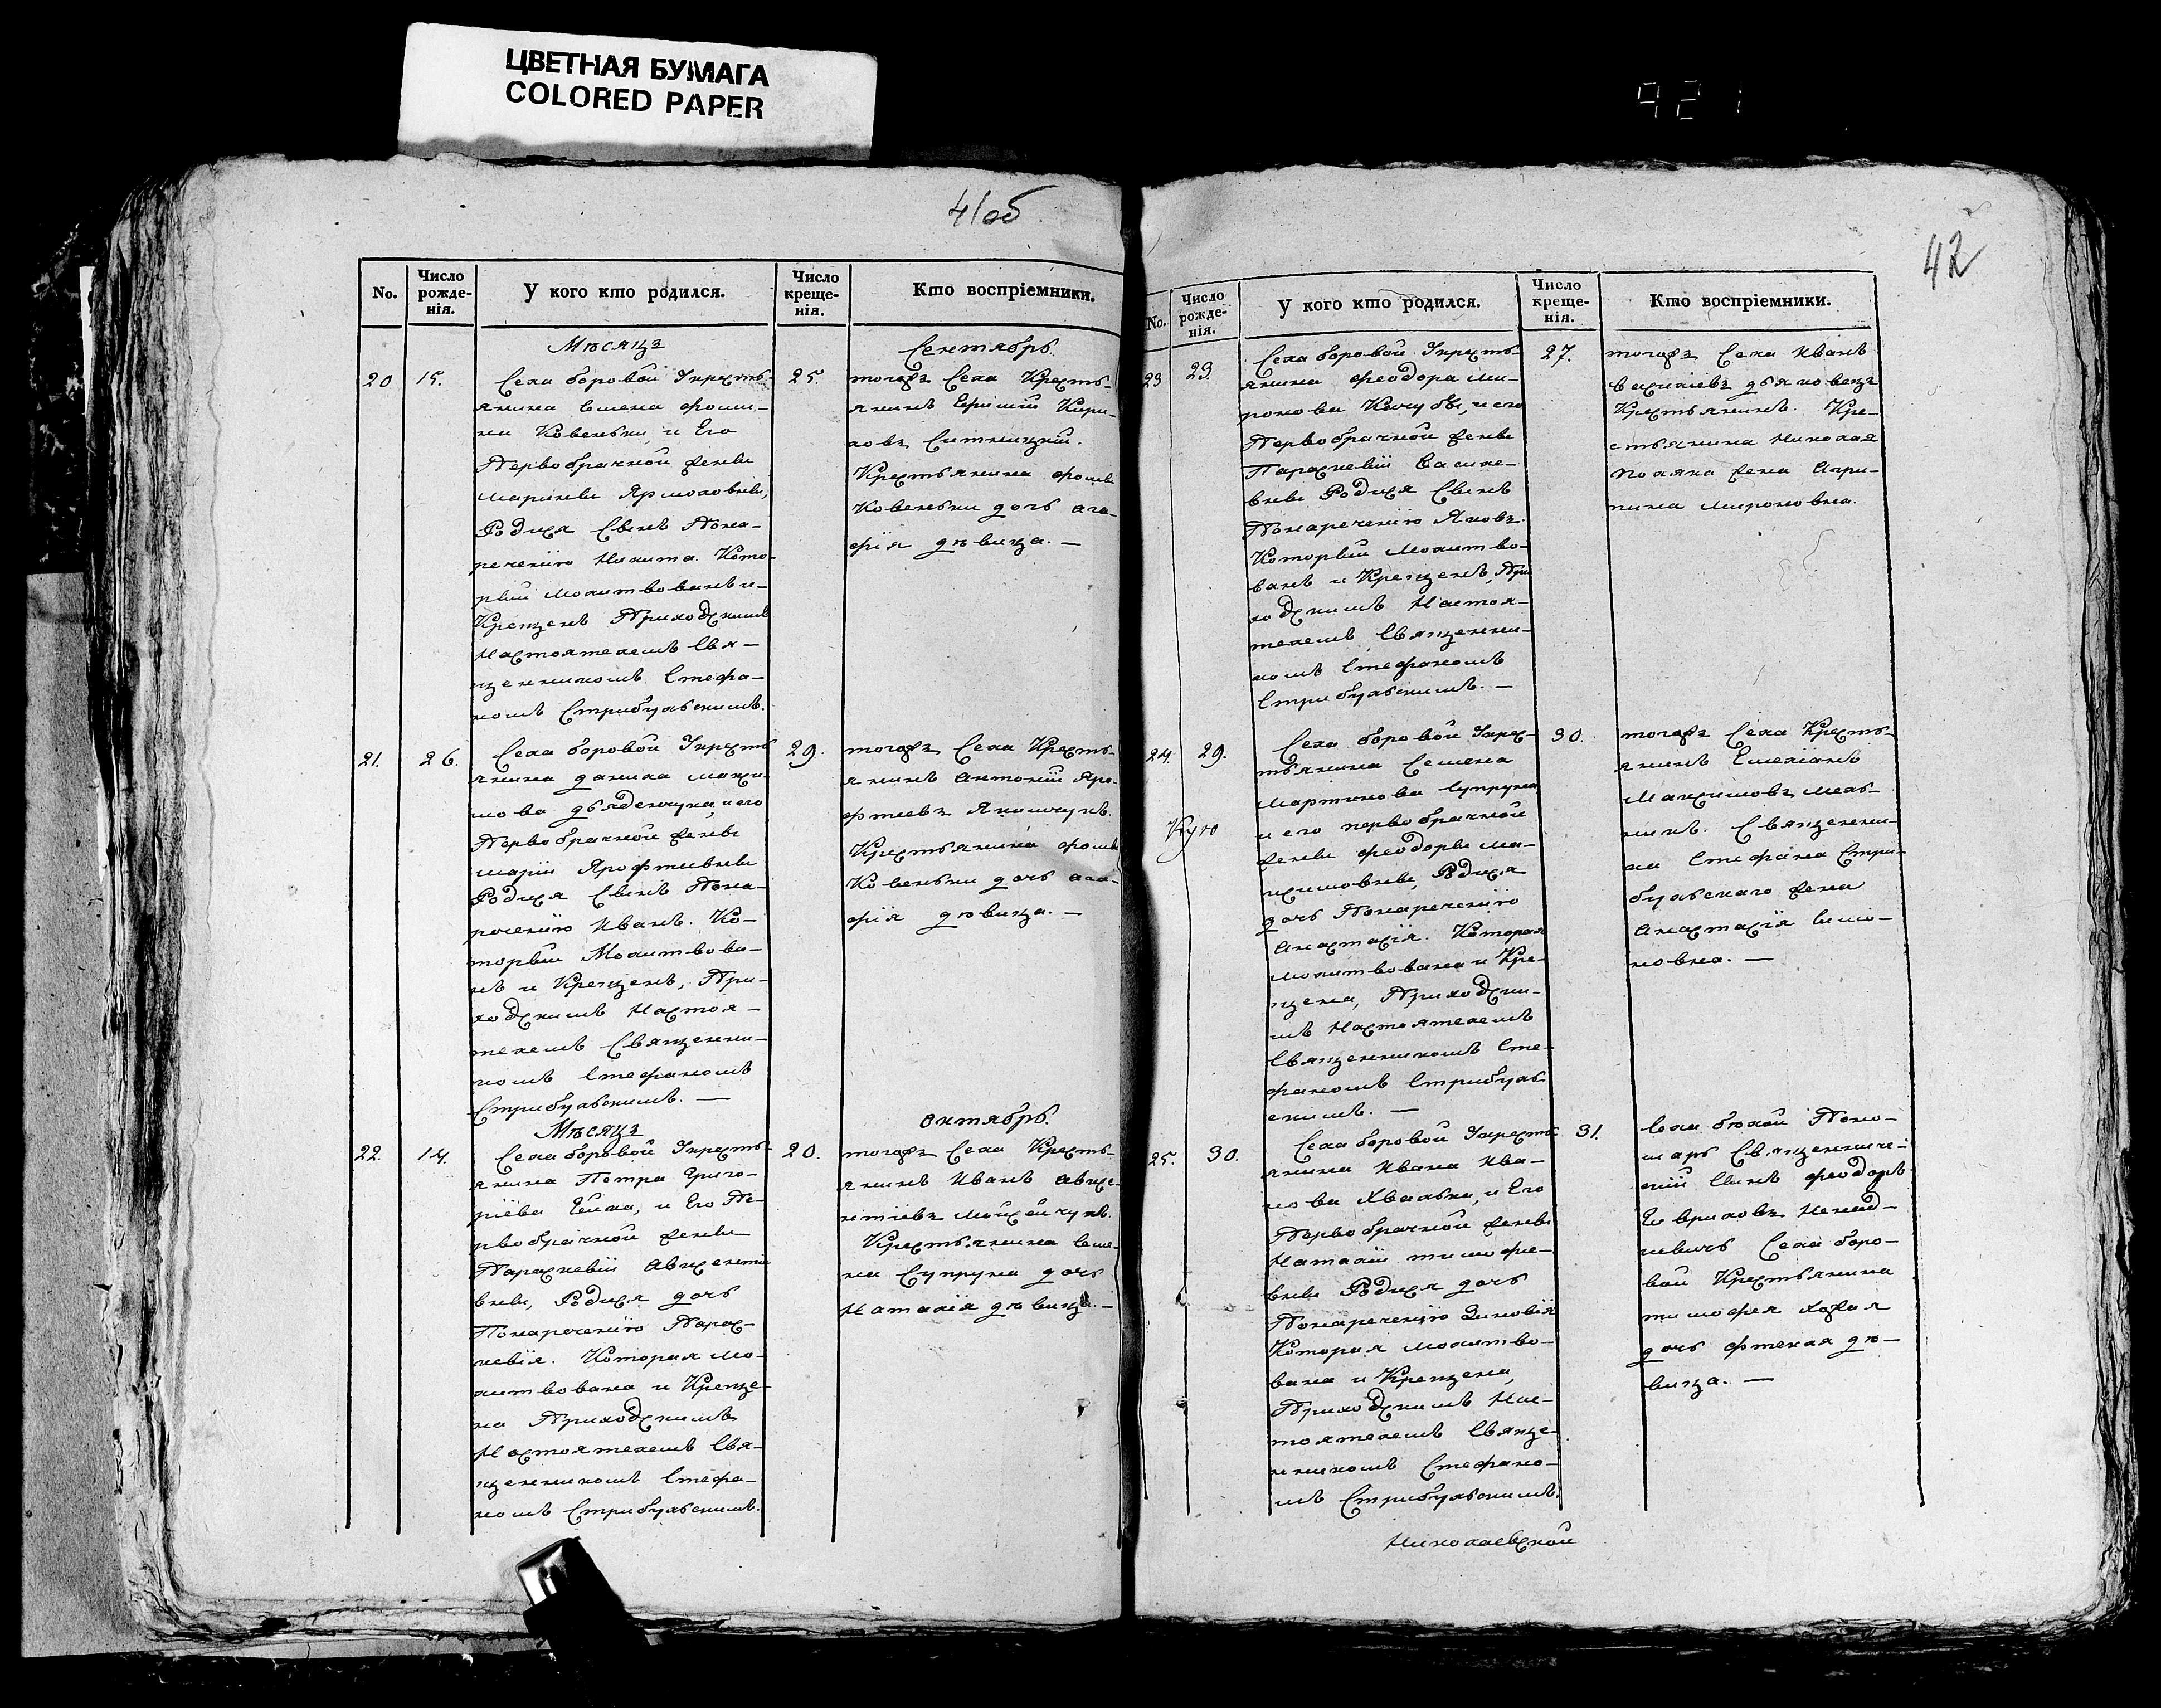 ЦВЕТНАЯ БУМАГА
COLORED PAPER
921
41об
42
No.
Число рожденія.
У кого кто родился.
Число крещенія.
Кто воспріемники.
Мѣсяцъ
Сентябрь.
20
15.
Села боровой У кресть-
янина Семена фоми-
ни Ковеньки, и Его
Первобрачной женѣ
маринѣ Ярмоловнѣ,
Родился Сынъ Пона-
реченію Никита. Кото-
рый молитвованъ и-
Крещенъ Приходскимъ
Настоятелемъ Свя-
щенникомъ Стефа-
номъ Стрибульскимъ.
25.
тогожъ Села Кресть-
янинъ Ефимій Кири-
ловъ Ситницкій.
Крестьянина фомы
Ковеньки дочь ага-
фія дѣвица. —
21.
26.
Села боровой У кресть
янина данила макси-
мова дьяденчука, и его
Первобрачной жены
маріи Ярофтиевны
Родился Сынъ Пона-
речению Иванъ. Ко-
торый Молитвова-
нъ и Крещенъ, При-
ходскимъ Настоя-
телемъ Священни-
комъ Стефаномъ
Стрибульскимъ. —
29.
тогожъ Села Кресть-
янинъ антоній Яро-
фтиевъ Якимчукъ.
Крестьянина фомы
Ковеньки дочь ага-
фія дѣвица. —
Мѣсяцъ
октябрь.
22.
14.
Села боровой У кресть-
янина Петра Григо-
ріева Гейка, и Его Пе-
рвобрачной жены
Параскевіи авксенті-
вны, Родился дочь
Понареченію Парас-
кевія. Которая мо-
литвована и Креще-
на Приходскимъ
Настоятелемъ Свя-
щенникомъ Стефа-
номъ Стрибульскимъ.
20.
тогожъ Села Кресть-
янинъ Иванъ авксе-
нтіевъ мойсейчукъ.
Крестьянина Семе-
на Супруна дочь
Наталія дѣвица. —
No.
Число рожденія.
У кого кто родился.
Число крещенія.
Кто воспріемники.
23
23.
Села боровой У кресть-
янина феодора ми-
ронова Качубы, и его
Первобрачной жены
Параскевіи василе-
вны Родился Сынъ
Понареченію Яковъ.
Который молитво-
ванъ и Крещенъ, При
ходскимъ Настоя-
телемъ Священни-
комъ Стефаномъ
Стрибульскимъ. —
27.
тогожъ Села Иванъ
василіевъ дьяковецъ
Крестьянинъ. Кре-
стьянина Николая
поляка жена Агри-
пина мироновна.
24.
29.
Села боровой У крес-
тьянина Семена
мартинова Супруна
и его первобрачной
жены феодоры ма-
ксимовны, Родился
дочь Понареченію
анастасія. Которая
молитвована и Кре-
щена, Приходски-
мъ Настоятелемъ
Священникомъ Сте-
фаномъ Стрибуль
скимъ. —
30.
тогожъ Села Кресть-
янинъ Емеліанъ
Максимовъ мель-
никъ. Священни-
ка Стефана Стри-
бульскаго жена
анастасія Симо-
новна. —
25.
30.
Села боровой У кресть
янина Ивана Ива-
нова Хвалька, и Его
Первобрачной жены
Наталіи тимофе-
вны Родился дочь
Понареченію Зиновія
Которая молитво-
вана и Крещена,
Приходскимъ Нас-
тоятелемъ Свяще-
нникомъ Стефано-
мъ Стрибульскимъ.
31.
Поно-
марь Священниче-
скій Сынъ феодоръ
Гавриловъ Ненад-
кевичъ Села боро-
вой Крестьянина
тимофея
дочь дѣ-
вица. —
Николаевской